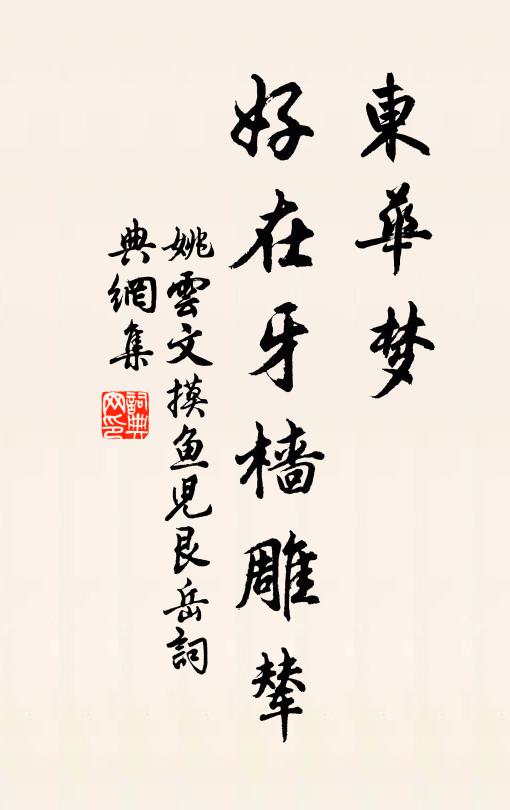 東華梦
好在牙檣雕輦
姚雲文摸鱼児艮岳詞
典網集
詞典
网印